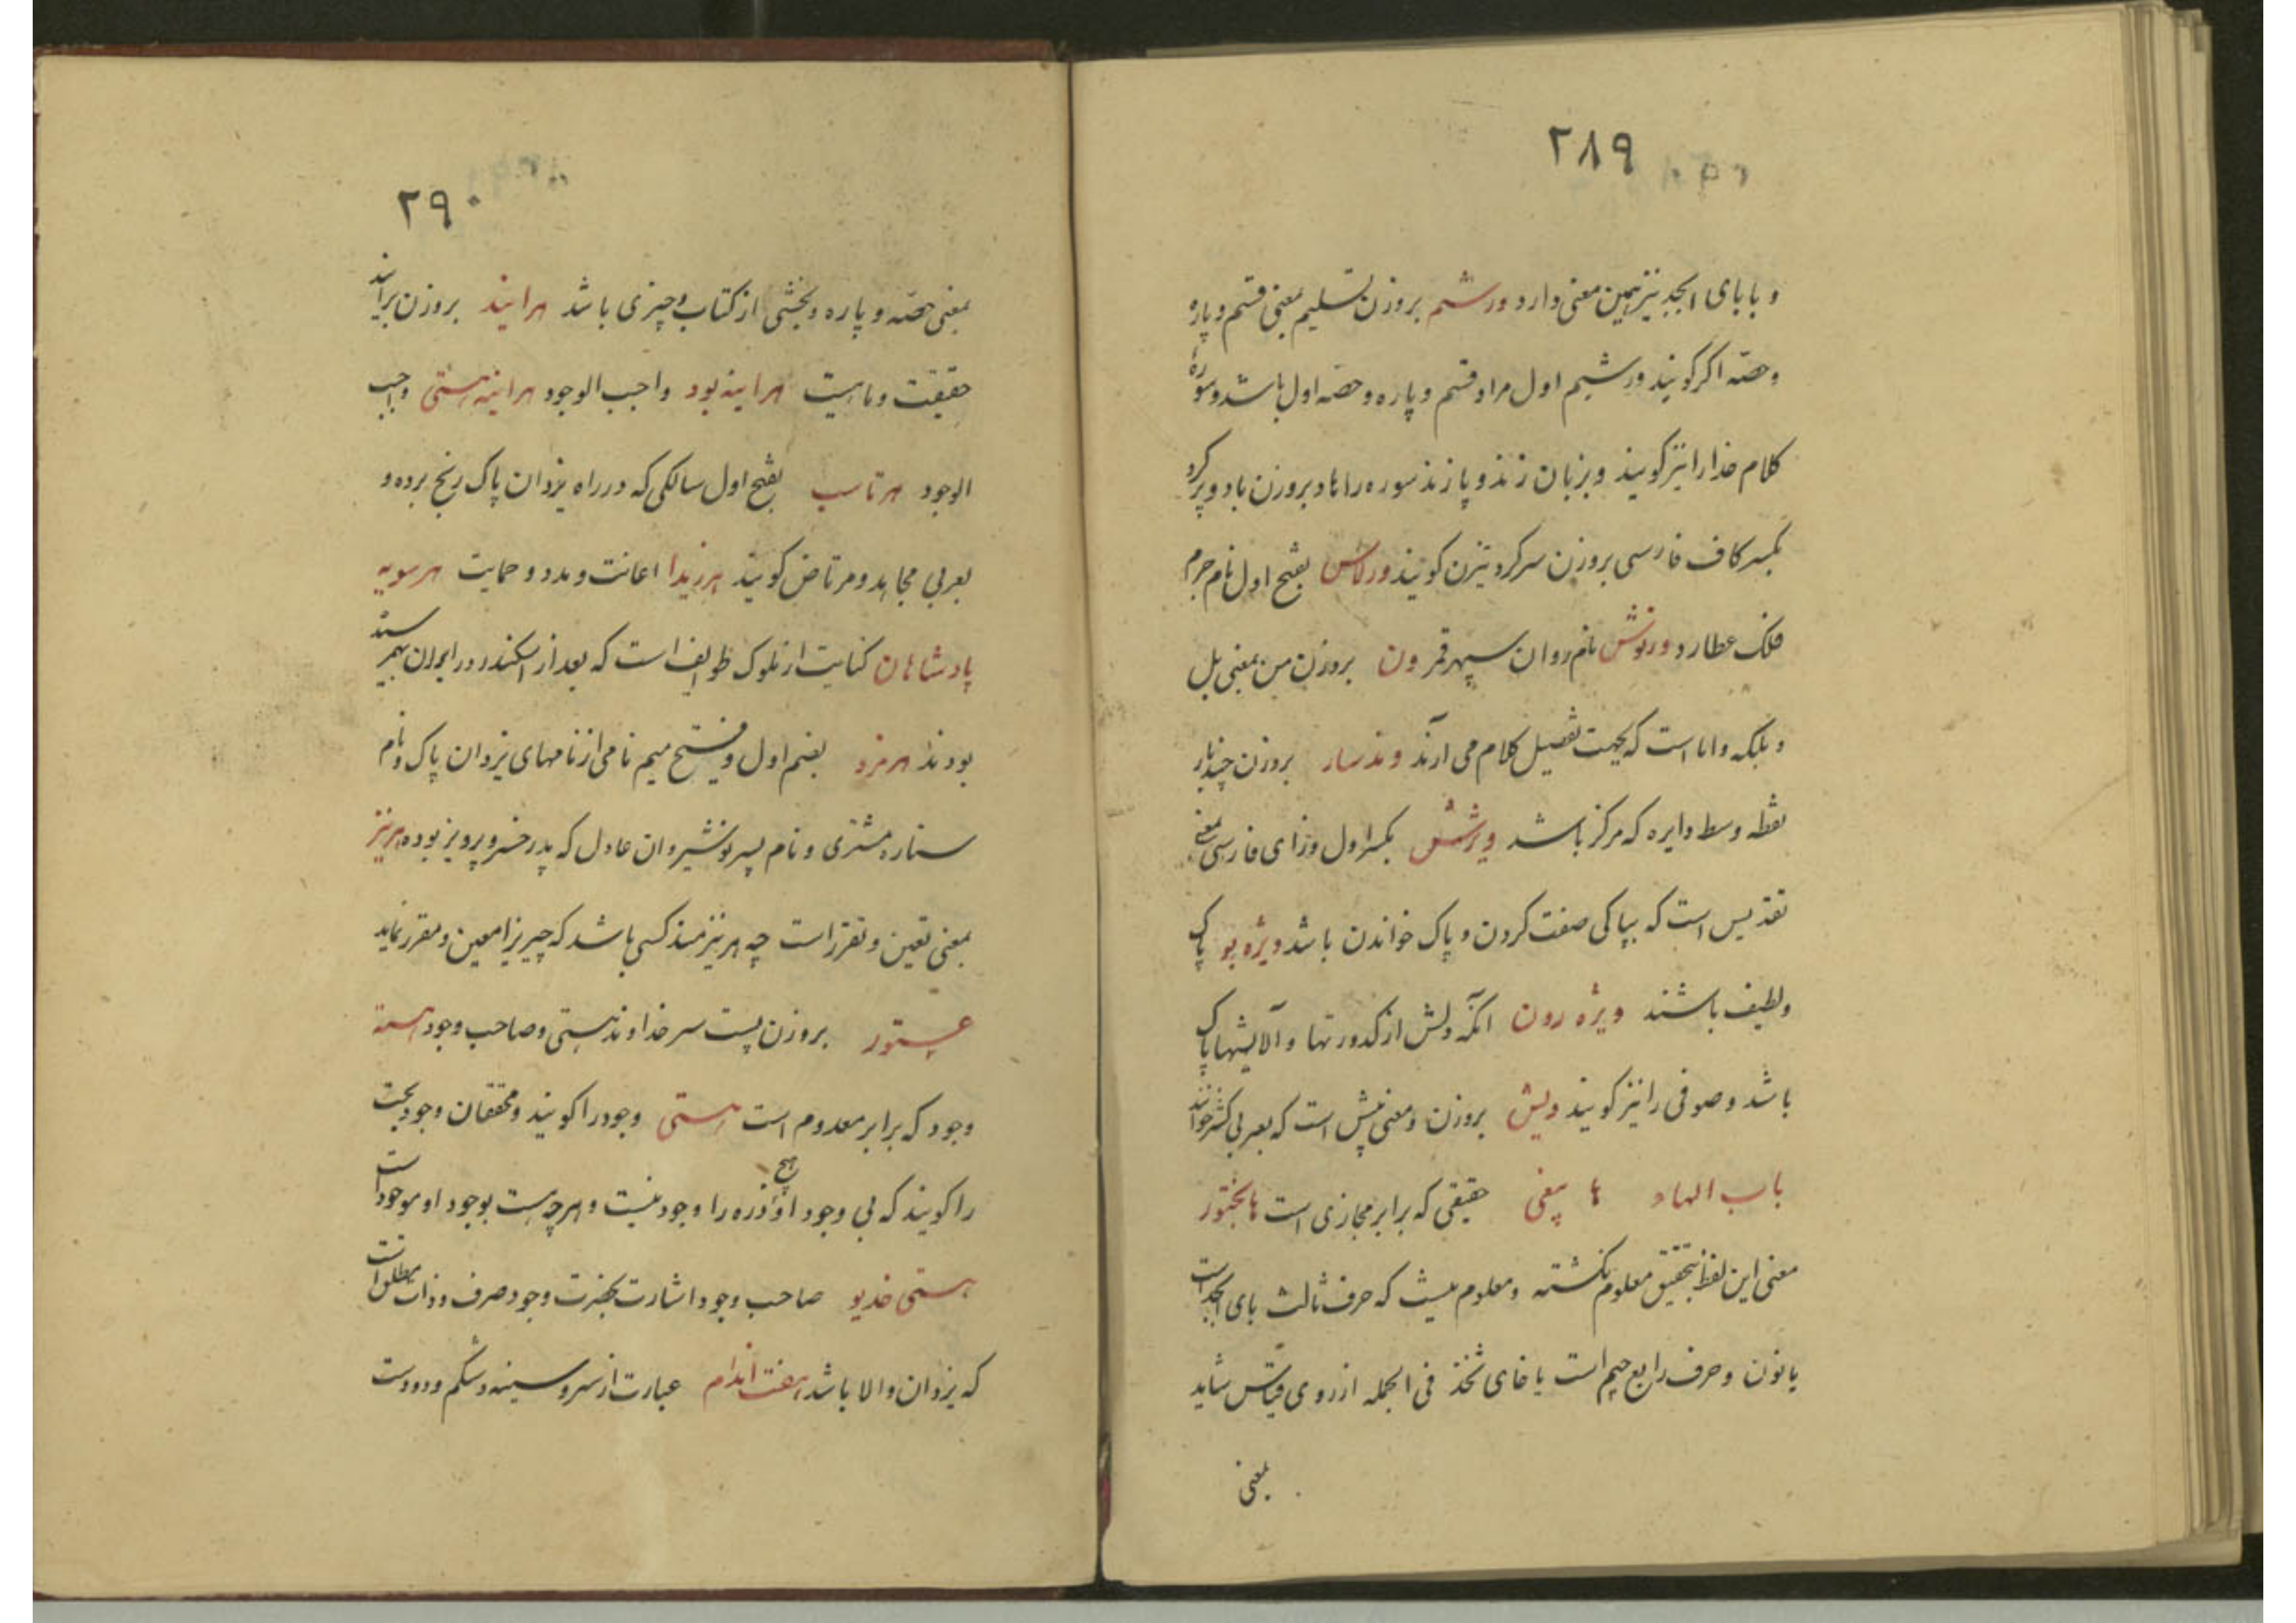 ۲۸۹
و با بای ابجد نیز همین معنی دارد ورشیم بروزن تسلیم بمعنی قسم و پاره
و حصّه اکر کویند ورشیم اول مراد قسم و پاره و حصه اول باشد و سورهٔ
کلام خدا را نیز کویند و بزبان زند و پازند سوره را هاد بروزن باد و پرکرد
بکسر کاف فارسی بروزن سرکرد نیز کویند ورلاس بفتح اول نام جرم
فلک عطارد ورنوش نام روان سپهر قمر ون بروزن من بمعنی بل
و بلکه و اما است که بجهت تفصیل کلام می آرند وندسار بروزن چندبار
نقطه وسط دایره که مرکز باشد ویژشش بکسر اول و زای فارسی بمعنی
تقدیس است که بپاکی صفت کردن و پاک خواندن باشد ویژه بو پاک
و لطیف باشند ویژه رون انکه دلش از کدورتها و آلایشها پاک
باشد و صوفی را نیز کویند ویش بروزن و معنی بیش است که بعربی کثر خوانند
باب الهاء ها پیغی حقیقی که برابر مجازی است هابختور
معنی این لفظ بتحقیق معلوم نکشته و معلوم نیست که حرف ثالث بای ابجد است
یا نون و حرف رابع جیم است یا خای ثخذ فی الجمله از روی قیاس شاید
بمعنی
۲۹۰
بمعنی حصّه و پاره و بخشی از کتاب و چیزی باشد هرایند بروزن برایند
حقیقت و ماهیت هراینه بود واجب الوجود هراینه هستی واجب
الوجود هرتاسب بفتح اول سالکی که در راه یزدان پاک رنج برده و
بعربی مجاهد و مرتاض کویند هرزیدا اعانت و مدد و حمایت هرسویه
پادشاهان کنایت از ملوک طوایف است که بعد از اسکندر در ایران بهم رسیده
بودند هرمزد بضم اول و فتح میم نامی از نامهای یزدان پاک و نام
ستاره مشتری و نام پسر نوشیروان عادل که پدر خسرو پرویز بوده هرنیز
بمعنی تعین و تقرر است چه هرنیزمند کسی باشد که چیزیرا معین و مقرر نماید
هستور بروزن پست سر خداوند هستی و صاحب وجود هسته
وجود که برابر معدوم است هستی وجود را کویند و محققان وجود بحت
را کویند که بی وجود او هیچ ذره را وجود نیست و هر چه هست بوجود او موجود است
هستی خدیو صاحب وجود اشارت بحضرت وجود صرف و ذات مطلق است
که یزدان والا باشد هفت اندام عبارت از سر و سینه و شکم و دو دست